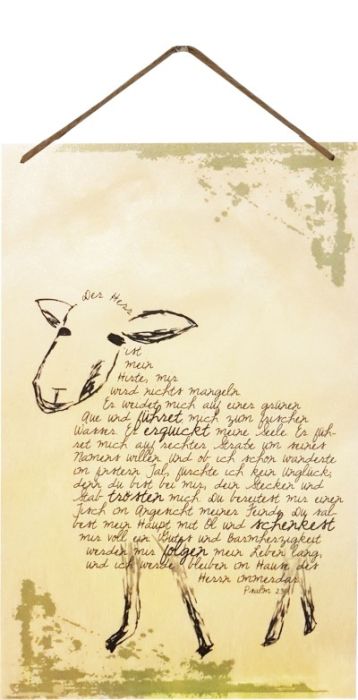 Der Herr
ist
mein
Hirte, mir
wird nichts mangeln.
Er weidet mich auf einer grünen
Aue und führet mich zum frischen
Wasser. Er erquickt meine Seele. Er füh-
ret mich auf rechter Straße um seines
Namens willen. Und ob ich schon wanderte
im finstern Tal, fürchte ich kein Unglück;
denn du bist bei mir, dein Stecken und
Stab trösten mich. Du bereitest mir einen
Tisch im Angesicht meiner Feinde. Du sal-
best mein Haupt mit Öl und schenkest
mir voll ein. Gutes und Barmherzigkeit
werden mir folgen mein Leben lang,
und ich werde bleiben im Hause des
Herrn immerdar.
Psalm 23